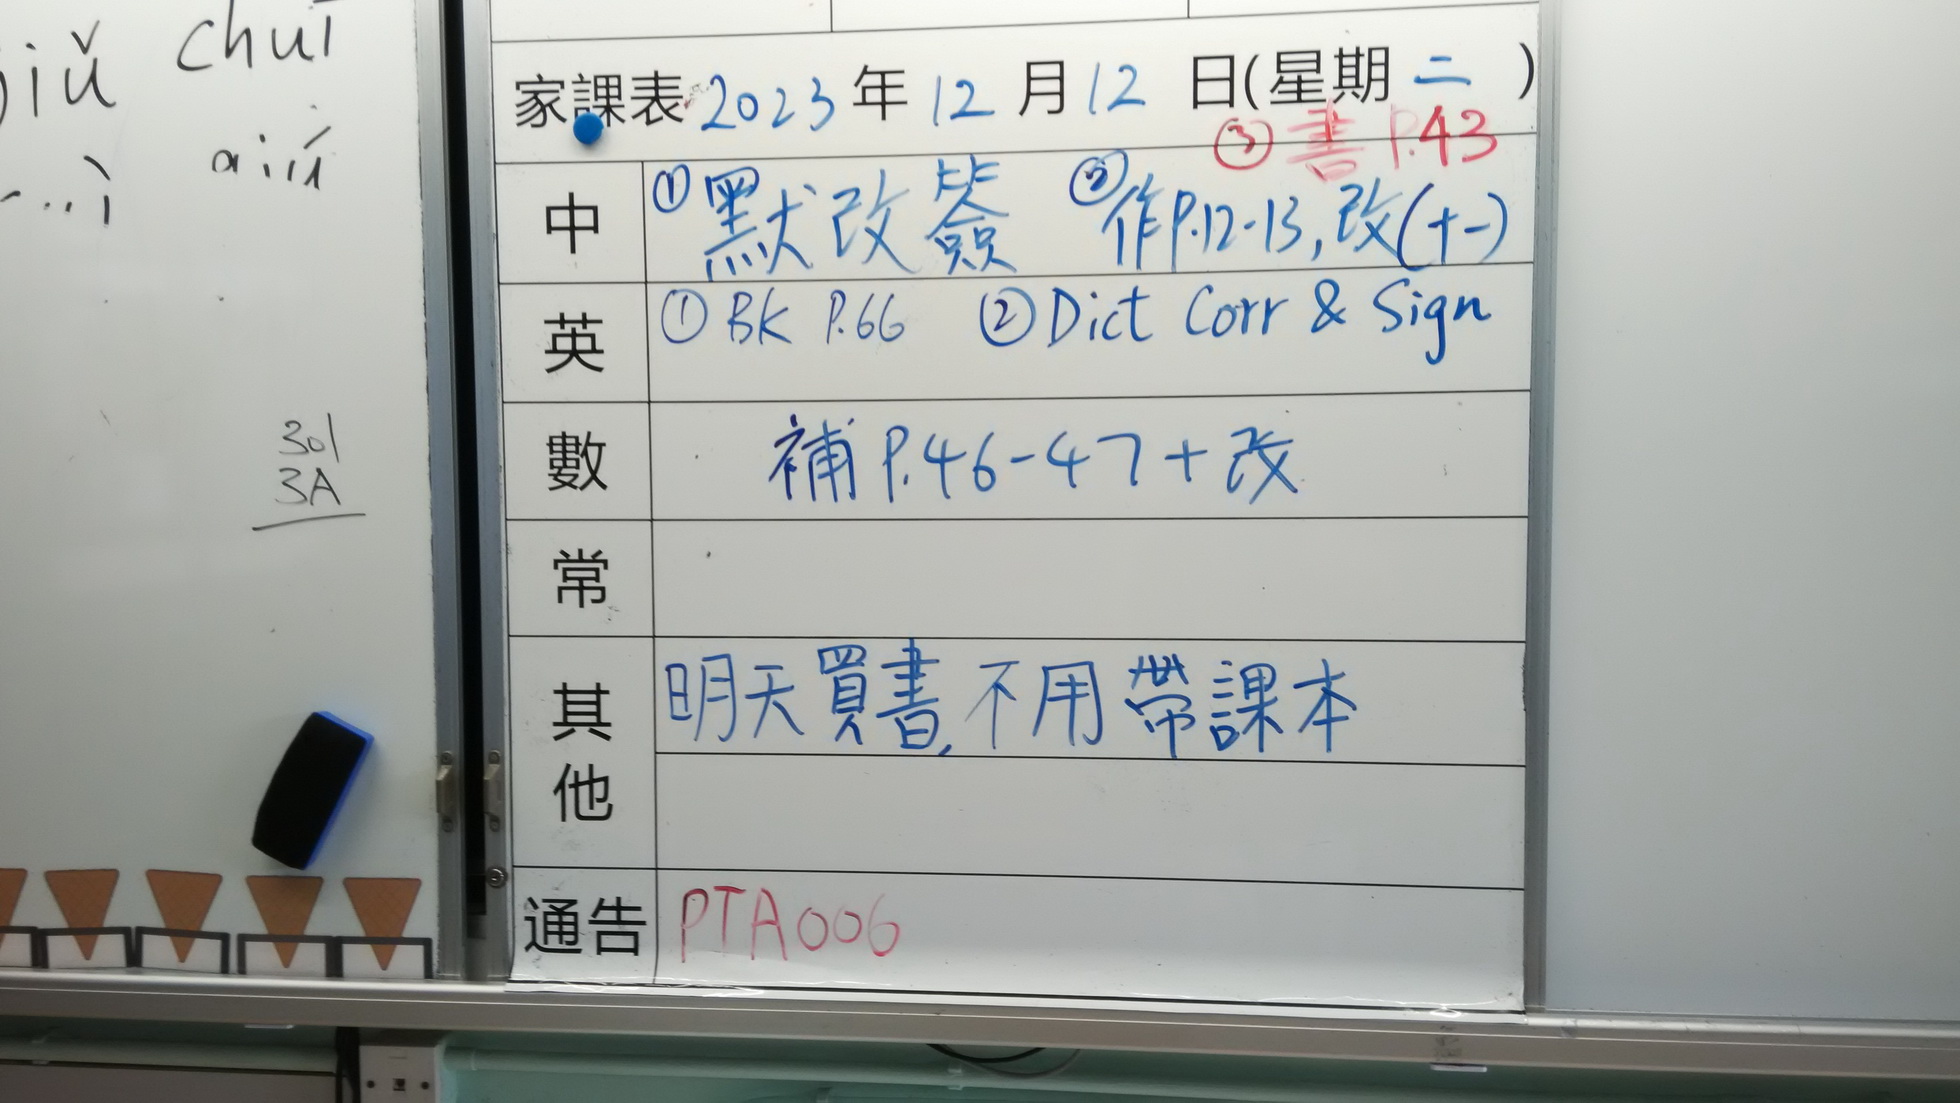 chuī
jiǔ
301
3A
家課表 2023 年 12 月 12 日(星期 二 )
③ 書 P.43
中 ① 默改簽 ② 作P.12-13, 改(十一)
英 ① BK P.66 ② Dict Corr & Sign
數 補 P.46-47 + 改
常
其他 明天買書, 不用帶課本
通告 PTA006